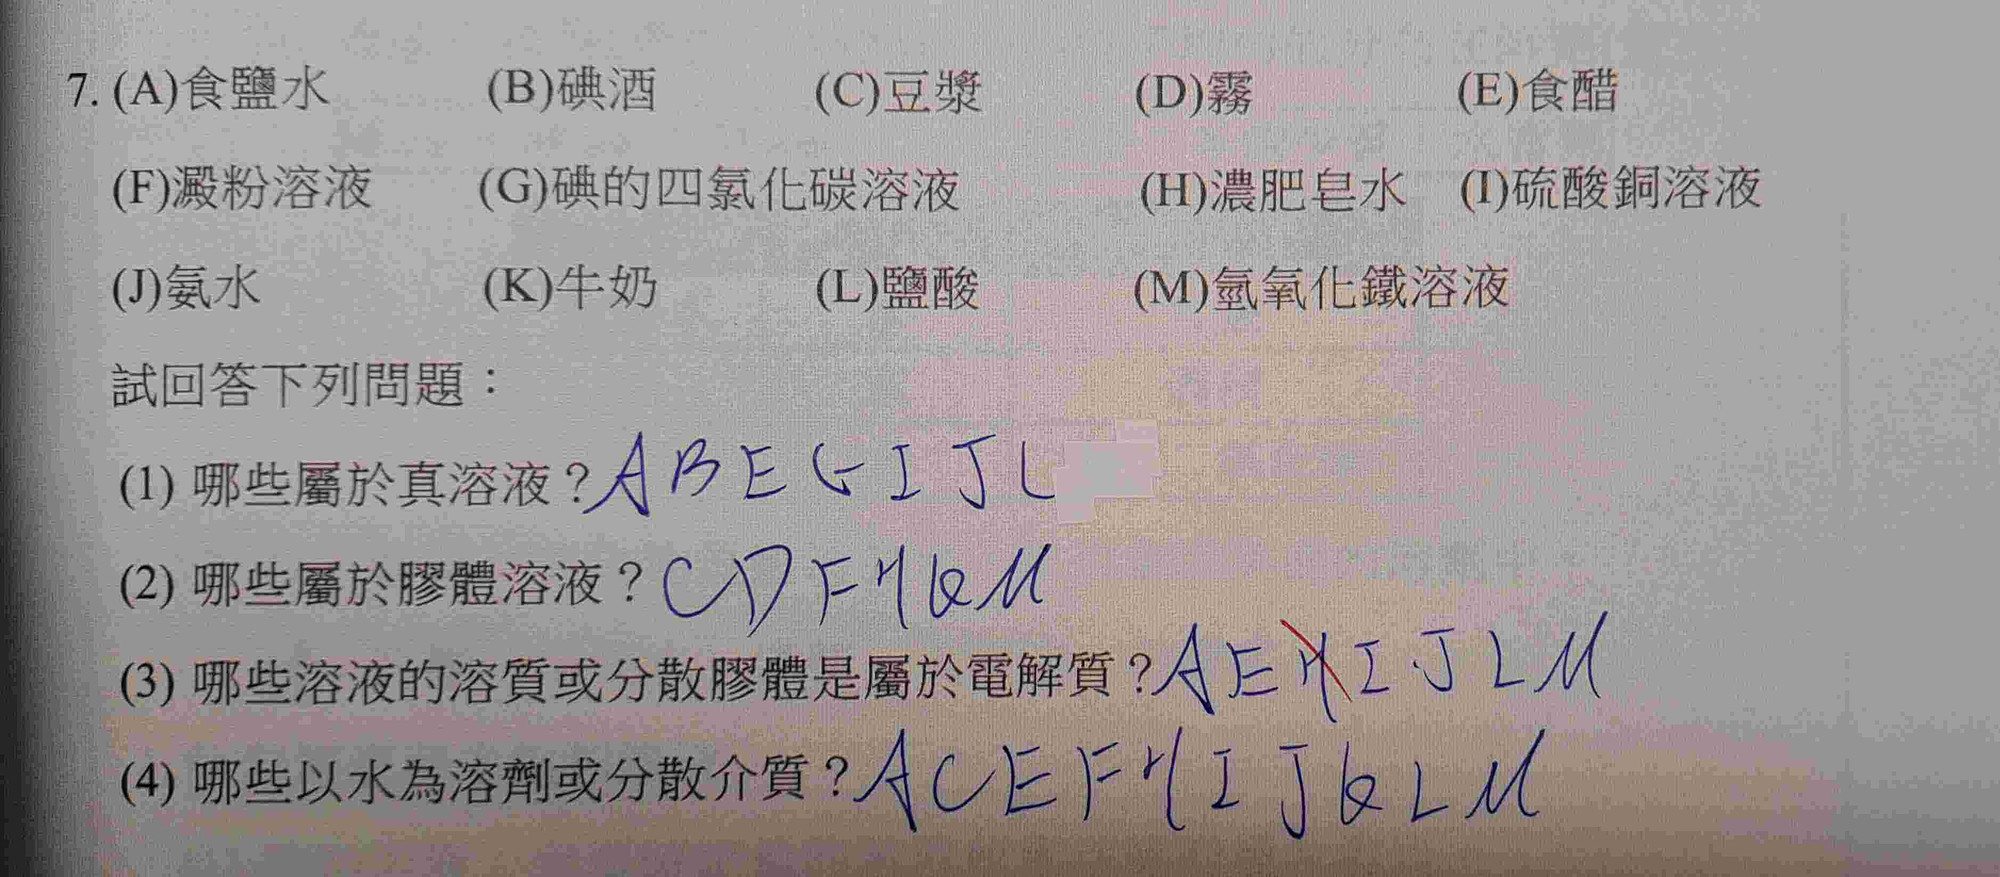 7. (A)食鹽水 (B)碘酒 (C)豆漿 (D)霧 (E)食醋
(F)澱粉溶液 (G)碘的四氯化碳溶液 (H)濃肥皂水 (I)硫酸銅溶液
(J)氨水 (K)牛奶 (L)鹽酸 (M)氫氧化鐵溶液
試回答下列問題：
(1) 哪些屬於真溶液？A B E G I J L
(2) 哪些屬於膠體溶液？C D F H K M
(3) 哪些溶液的溶質或分散膠體是屬於電解質？A E H I J L M
(4) 哪些以水為溶劑或分散介質？A C E F H I J K L M